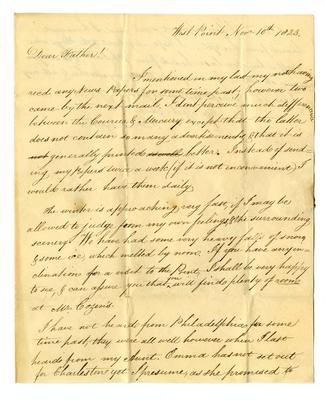 West Point Nov 10th 1833.
Dear Father!
I mentioned in my last my not having
recd any News Papers for some time past, however two
came by the next mail. I dont perceive much difference
between the Courier & Mercury except that the latter
does not contain so many advertisements, & that it is
not generally printed better. Instead of send-
ing my Papers twice a week (if it is not inconvenient) I
would rather have them daily.
The winter is approaching very fast, if I may be
allowed to judge from my own feelings & the surrounding
scenery. We have had some very heavy falls of snow
& some ice, which melted by noon. If you have any in-
clination for a visit to the Point, I shall be very happy
to see, & can assure you that you will find plenty of room
at Mr Cozens.
I have not heard from Philadelphia for some
time past, they were all well however when I last
heard from my Aunt. Emma has not set out
for Charleston yet I presume, as she promised to